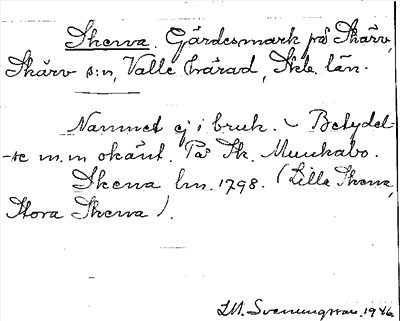 Skewa. Gärdesmark på Skärv,
Skärv s:n, Valle härad, Skb. län.
Namnet ej i bruk. – Betydel-
se m.m okänt. På Sk. Munkabo.
Skewa lm. 1798. (Lilla Skewa,
Stora Skewa).
I.M. Svenungsson. 1946